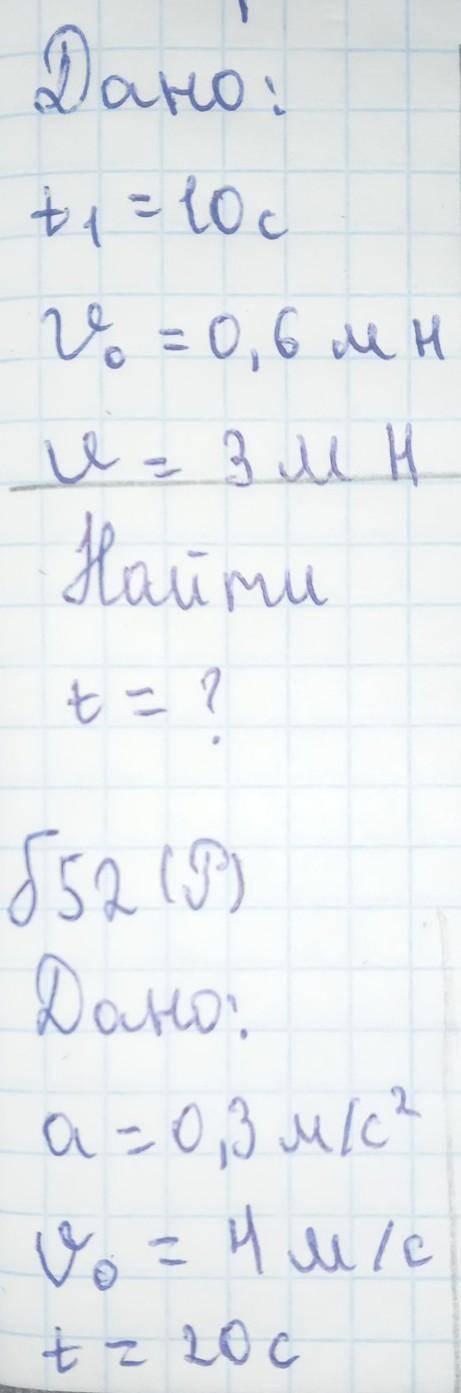 Дано:
t₁ = 10с
v₀ = 0,6 м н
v = 3 м н
Найти
t = ?
б52 (Р)
Дано:
a = 0,3 м/с²
v₀ = 4 м/с
t = 20с